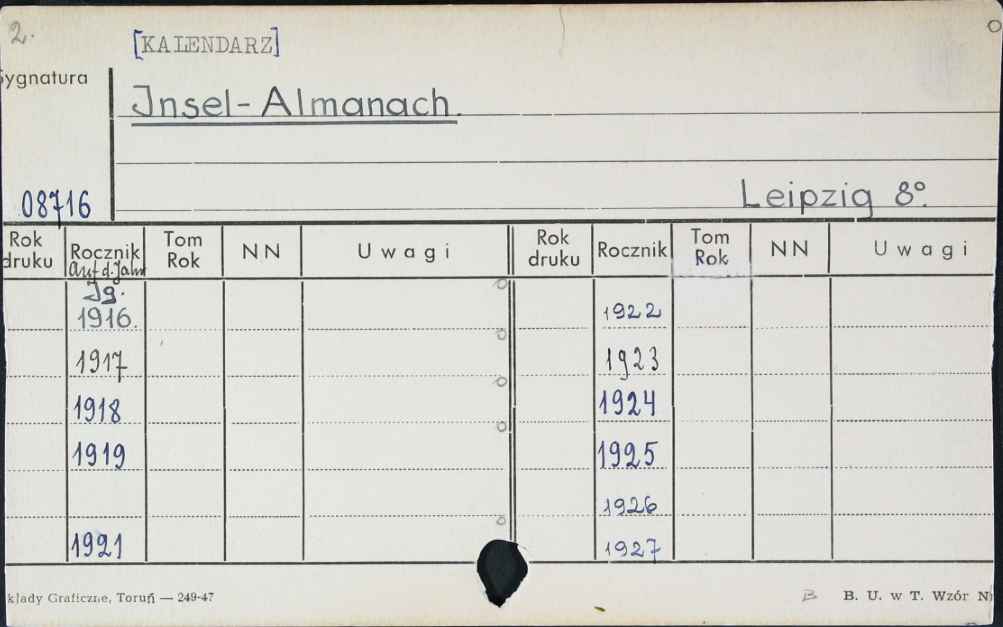 2.
[KALENDARZ]
Sygnatura
Insel-Almanach.
08716
Leipzig 8°.
Rok druku Rocznik Tom Rok NN Uwagi Rok druku Rocznik Tom Rok NN Uwagi
Auf d. Jahr
Jg.
1916. 1922
1917 1923
1918 1924
1919 1925
1926
1921 1927
kłady Graficzne, Toruń — 249-47
B B. U. w T. Wzór N